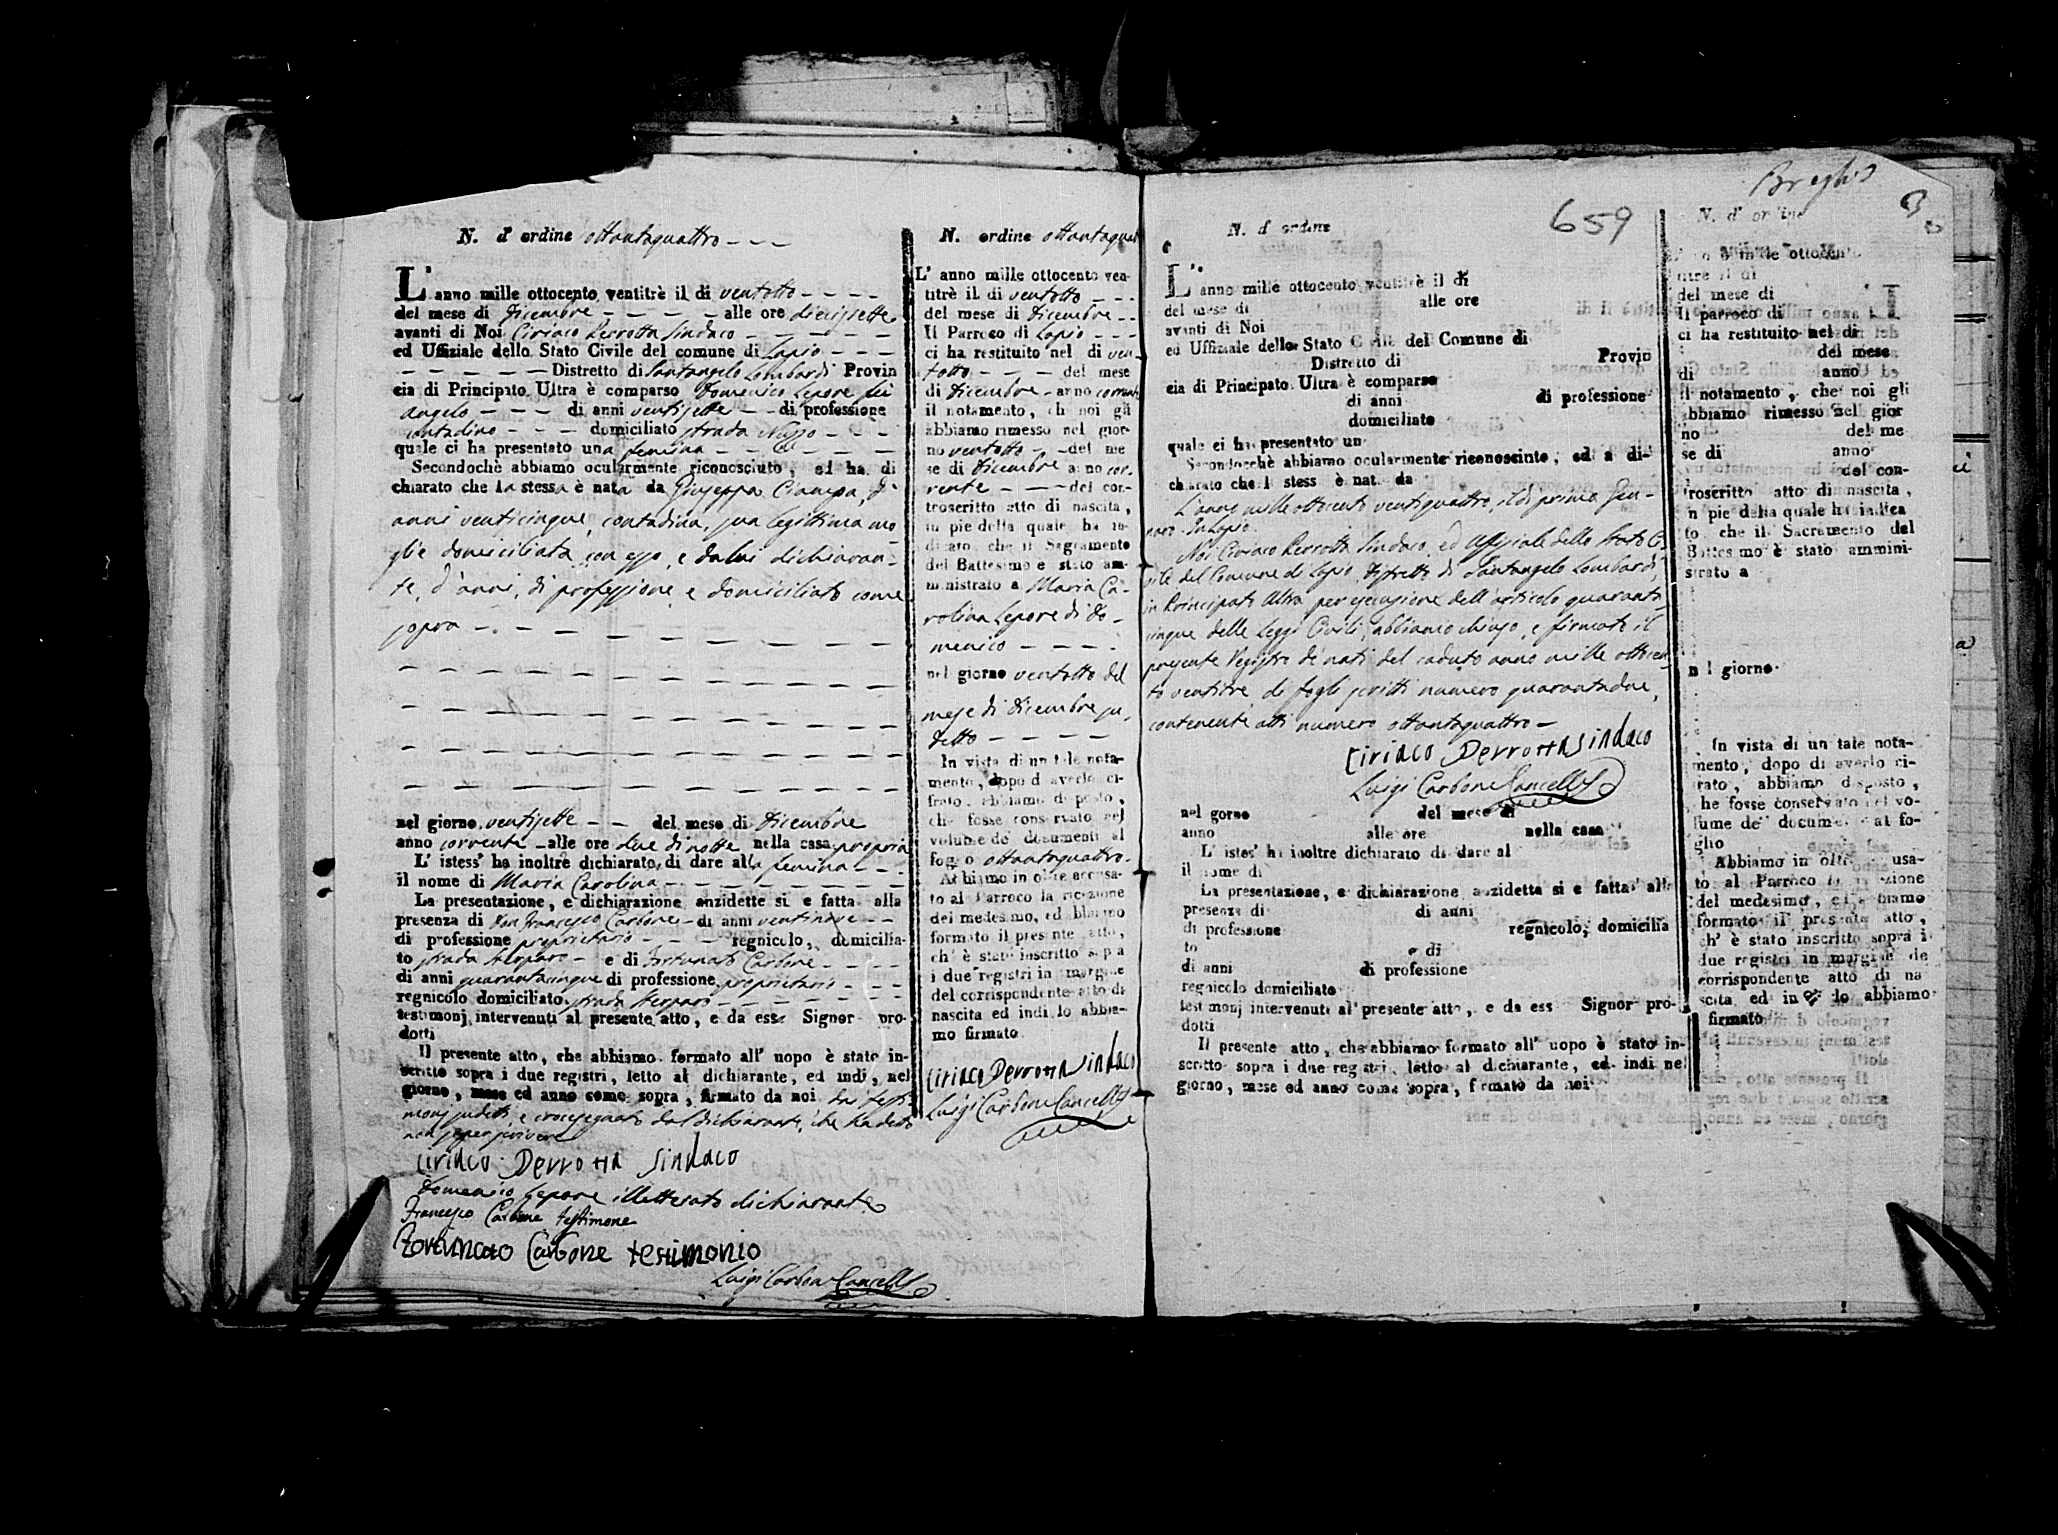 N. d' ordine ottantaquattro
L' anno mille ottocento ventitrè il dì ventotto
del mese di Dicembre alle ore diecisette
avanti di Noi Ciriaco Perrotta Sindaco
ed Uffiziale dello Stato Civile del comune di Lapio
Distretto di Santangelo Lombardi Provin
cia di Principato Ultra è comparso Domenico Lepore fu
Angelo di anni ventisette di professione
contadino domiciliato strada
quale ci ha presentato una femina
Secondochè abbiamo ocularmente riconosciuto, ed ha di
chiarato che la stessa è nata da Giuseppa Ciampa, d'
anni venticinque, contadina, sua legittima mo
glie domiciliata con esso, e da lui dichiaran-
te, d'anni, di professione, e domiciliato come
sopra
nel giorno ventisette del mese di Dicembre
anno corrente alle ore due di notte nella casa propria
L' istess' ha inoltre dichiarato di dare alla femina
il nome di Maria Carolina
La presentazione, e dichiarazione anzidette si è fatta alla
presenza di Don Francesco Carbone di anni ventinove
di professione proprietario regnicolo, domicilia-
to strada e di Fortunato Carbone
di anni quarantacinque di professione proprietario
regnicolo domiciliato strada
testimonj intervenuti al presente atto, e da esso Signor pro-
dotti
Il presente atto, che abbiamo formato all' uopo è stato in-
scritto sopra i due registri, letto al dichiarante, ed indi, nel
giorno, mese ed anno come sopra, firmato da noi dai testi
monj sudetti e crocesegnato dal dichiarante, che ha detto
non saper scrivere
Ciriaco Perrotta Sindaco
Domenico Lepore illetterato dichiarante
Francesco Carbone testimone
Fortunato Carbone testimonio
Luigi Carbone Cancell
N. ordine ottantaquat
L' anno mille ottocento ven-
titrè il dì ventotto
del mese di Dicembre
Il Parroco di Lapio
ci ha restituito nel dì ven-
totto del mese
di Dicembre anno corrente
il notamento, ch noi gli
abbiamo rimesso nel gior-
no ventotto del me
se di Dicembre anno cor-
rente del con-
troscritto atto di nascita,
in piè della quale ha in-
dicato che il Sagramento
del Battesimo è stato am-
ministrato a Maria Ca-
rolina Lepore di Do-
menico
nel giorno ventotto del
mese di Dicembre su-
detto
In vista di un tale nota-
mento, dopo d averlo ci-
frato, abbiamo disposto,
che fosse conservato nel
volume de' documenti al
foglio ottantaquattro
Abbiamo in oltre accusa-
to al Parroco la ricezione
del medesimo, ed abbiamo
formato il presente atto,
ch' è stato inscritto sopra
i due registri in margine
del corrispondente atto di
nascita ed indi lo abbia-
mo firmato
Ciriaco Perrotta Sindaco
Luigi Carbone Cancell
N. d' ordine
659
L' anno mille ottocento ventitrè il dì
del mese di alle ore
avanti di Noi
ed Uffiziale dello Stato Civile del Comune di
Distretto di Provin
cia di Principato Ultra è comparso
di anni di professione
domiciliato
quale ci ha presentato un
Secondocchè abbiamo ocularmente riconosciuto, ed a di-
chiarato che l stess è nat da
L'anno mille ottocento ventiquattro, il dì primo Gen-
naro. In Lapio
Noi Ciriaco Perrotta Sindaco, ed Uffiziale dello Stato Ci-
vile del Comune di Lapio Distretto di Santangelo Lombardi,
in Principato Ultra per esecuzione dell'articolo quaranta-
cinque delle Leggi Civili, abbiamo chiuso, e firmato il
presente Registro de' nati del caduto anno mille ottocen-
to ventitre di fogli scritti numero quarantadue,
contenente atti numero ottantaquattro
Ciriaco Perrotta Sindaco
Luigi Carbone Cancell
nel gorno del mese di
anno alle ore nella casa
L' istes' ha inoltre dichiarato di dare al
il nome di
La presentazione, e dichiarazione anzidetta si è fatta alla
presenza di di anni
di professione regnicolo, domicilia
to e di
di anni di professione
regnicolo domiciliato
testimonj intervenuti al presente atto, e da ess Signor pro-
dotti
Il presente atto, che abbiamo formato all' uopo è stato in-
scritto sopra i due registri, letto al dichiarante, ed indi nel
giorno, mese ed anno come sopra, firmato da noi
N. d' ordine
mille ottocento
titrè il dì
del mese di
Il parroco di
ci ha restituito nel di
del mese
di anno
il notamento, che noi gli
abbiamo rimesso nel gior
no del me
se di anno
del con-
troscritto atto di nascita,
in piè della quale ha indica
to che il Sacramento del
Battesimo è stato ammini-
strato a
n l giorno
In vista di un tale nota-
mento, dopo di averlo ci-
frato, abbiamo disposto,
che fosse conservato nel vo-
lume de' documenti al fo-
glio
Abbiamo in oltre accusa-
to al Parroco la ricezione
del medesimo, ed abbiamo
formato il presente atto,
ch' è stato inscritto sopra i
due registri in margine de
corrispondente atto di na
scita ed indi lo abbiamo
firmato